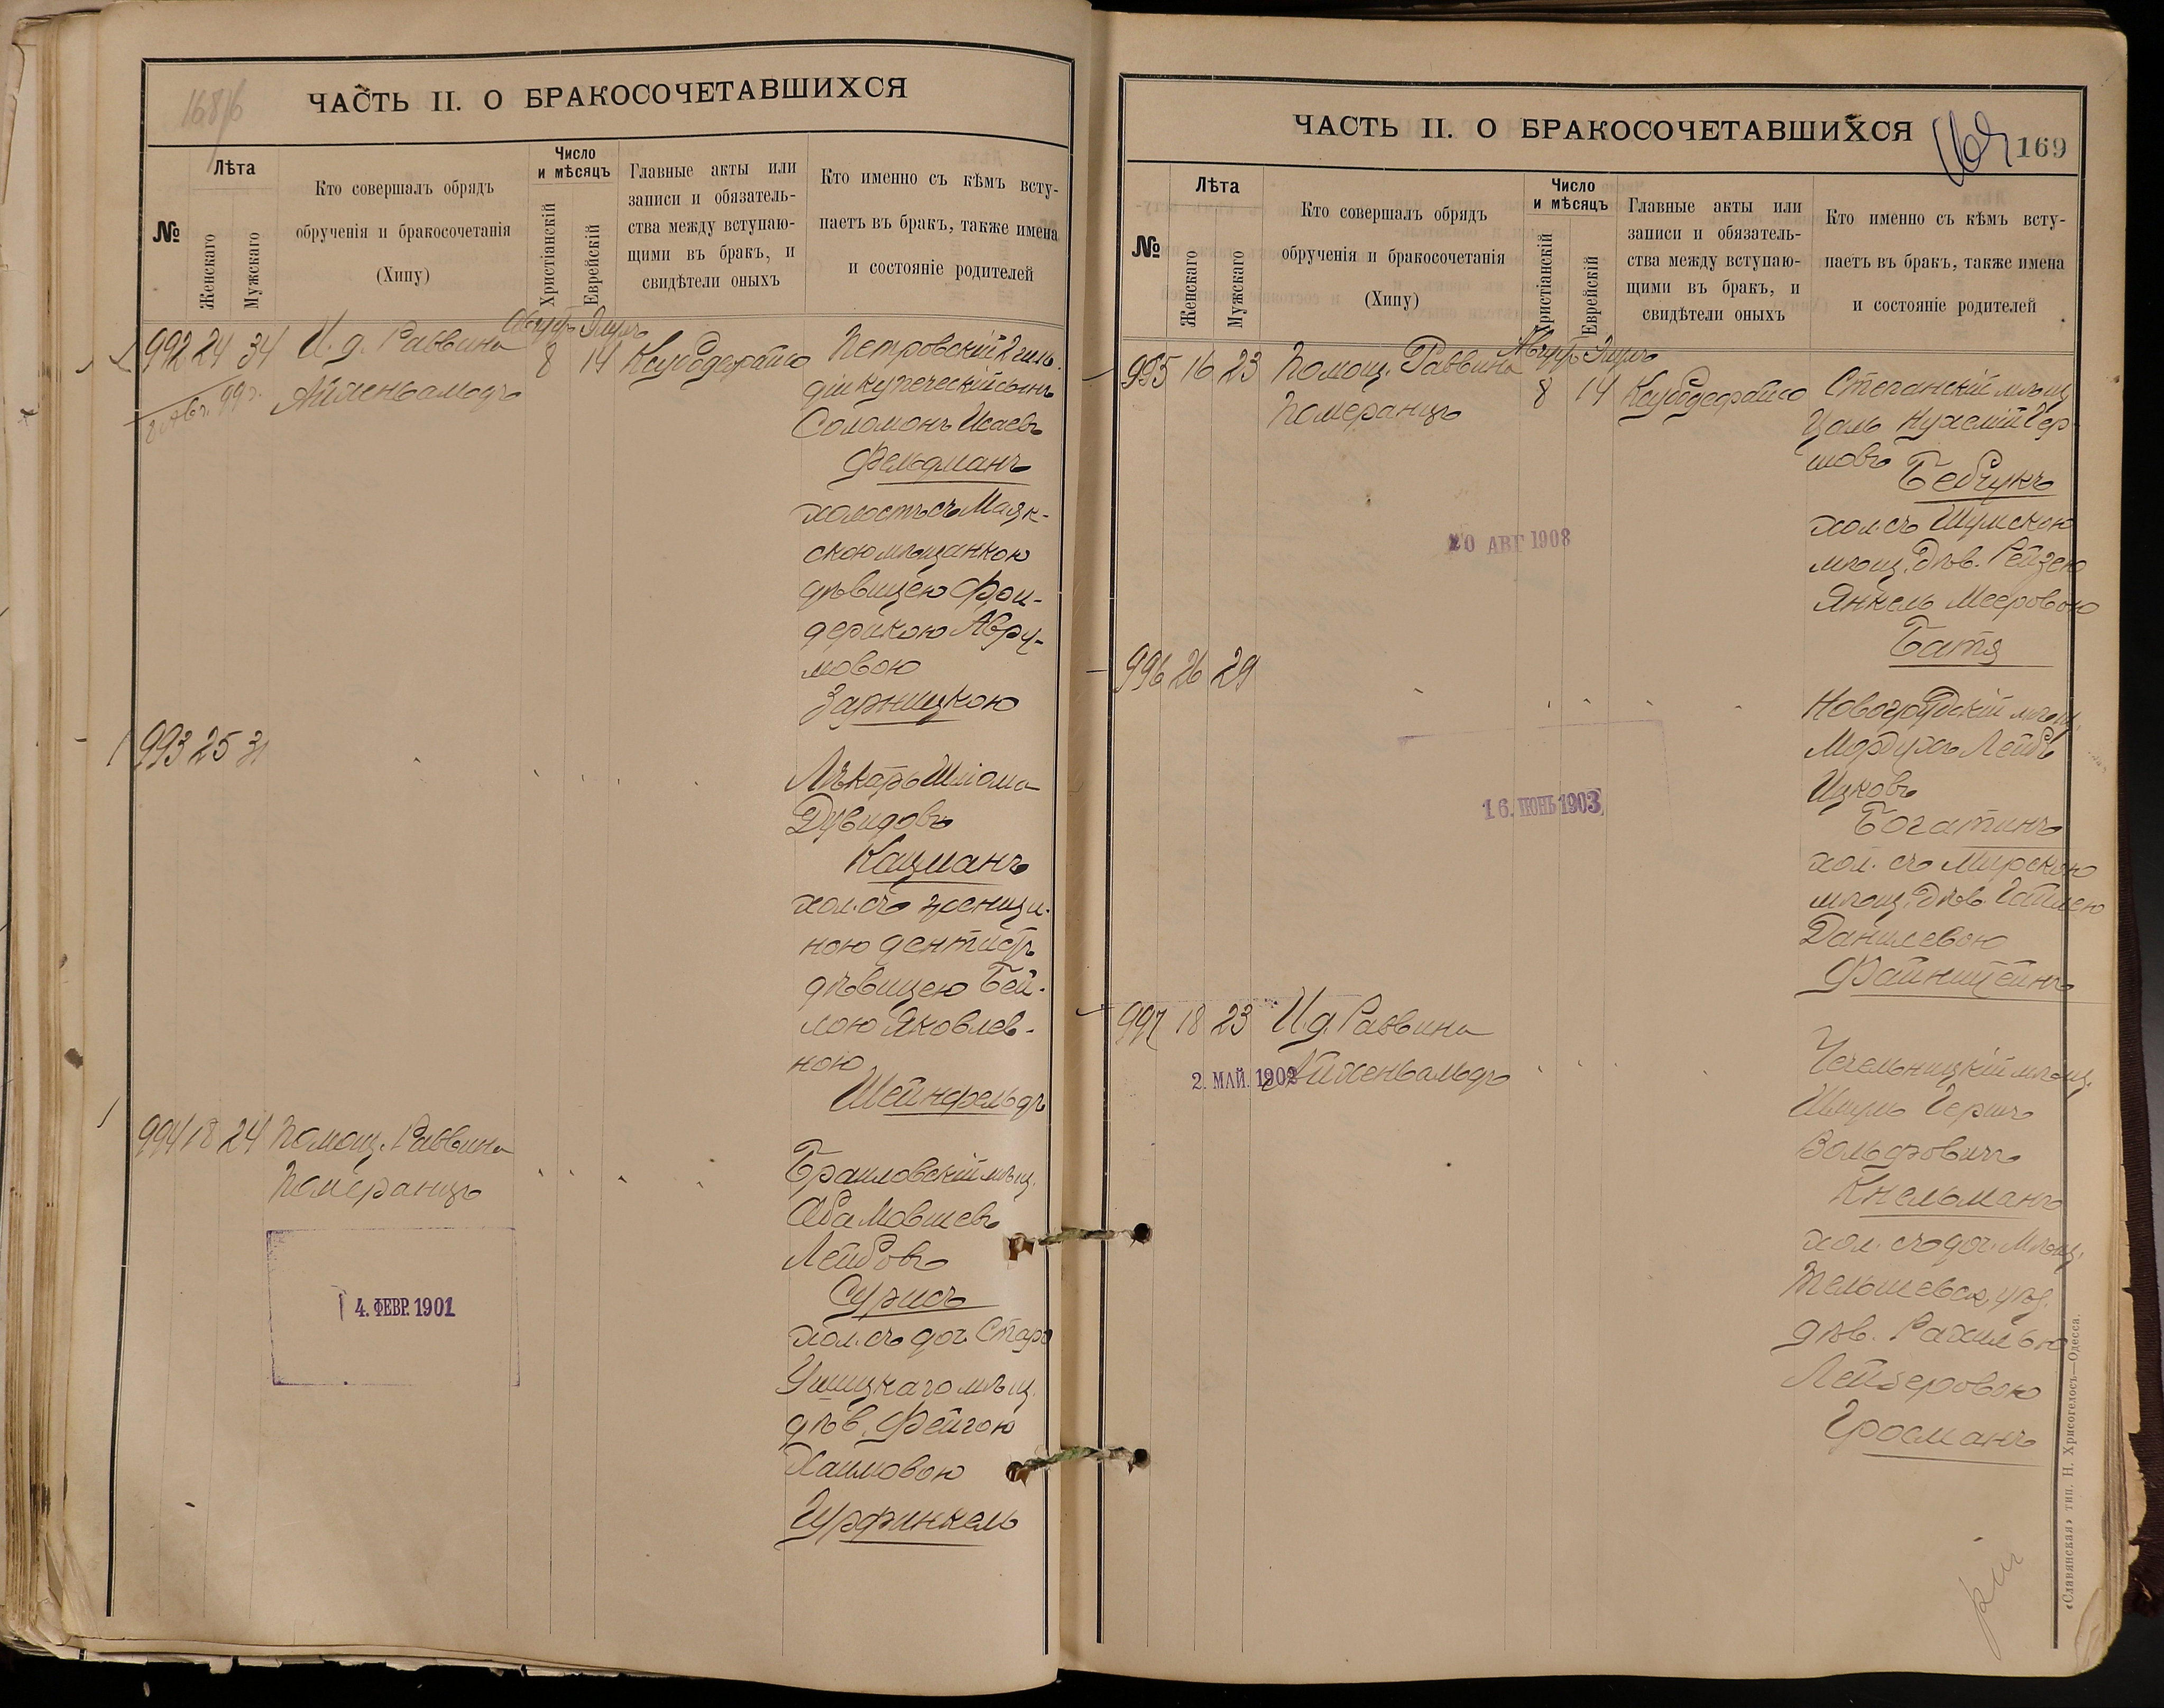 168/б
ЧАСТЬ II. О БРАКОСОЧЕТАВШИХСЯ
№
Лѣта
Женскаго
Мужскаго
Кто совершалъ обрядъ
обрученія и бракосочетанія
(Хипу)
Число
и мѣсяцъ
Христіанскій
Еврейскій
Главные акты или
записи и обязатель-
ства между вступаю-
щими въ бракъ, и
свидѣтели оныхъ
Кто именно съ кѣмъ всту-
паетъ въ бракъ, также имена
и состояніе родителей
992 24 34 И. д. Раввина
Айхенвальдъ
Августъ Элулъ
8 14
Петровскій 2 гиль-
діи купеческій сынъ
Соломонъ Исаевъ
Фельдманъ
холостъ съ Маяк-
скою мѣщанкою
дѣвицею
мовою
Зарницкою
993 25 31
Лѣкарь Шлома
Дувидовъ
Кацманъ
хол. съ
ною дентистъ
дѣвицею Бей-
лою Яковлев-
ною
Шейнфельдъ
994 18 24 Помощ. Раввина
Померанцъ
4. ФЕВР. 1901
Браиловскій мѣщ.
Аба Мовшевъ
Лейбовъ
Сурисъ
хол. съ доч. Старо
Ушицкаго мѣщ.
дѣв. Фейгою
Хаимовою
Гурфинкель
ЧАСТЬ II. О БРАКОСОЧЕТАВШИХСЯ
169
169
№
Лѣта
Женскаго
Мужскаго
Кто совершалъ обрядъ
обрученія и бракосочетанія
(Хипу)
Число
и мѣсяцъ
Христіанскій
Еврейскій
Главные акты или
записи и обязатель-
ства между вступаю-
щими въ бракъ, и
свидѣтели оныхъ
Кто именно съ кѣмъ всту-
паетъ въ бракъ, также имена
и состояніе родителей
995 16 23 Помощ. Раввина
Померанцъ
Августъ Элулъ
8 14
20 АВГ 1908
Степанскій мѣщ
Нухемъ Гер-
шовъ
Бебчукъ
хол. съ Шумскою
мѣщ. Дѣв. Рейзею
Янкель Мееровою
Батя
996 26 29
16. ІЮНЬ 1903
мѣщ.
Мордухъ Лейбъ
Ицковъ
Богатинъ
хол. съ Мирскою
мѣщ. Дѣв.
Данилевою
Файнштейнъ
997 18 23 И. д. Раввина
Айхенвальдъ
2. МАЙ. 1902
Чечельницкій мѣщ.
Шмуль Гершъ
Вольфовичъ
Кнельманъ
хол. съ доч. Мѣщ.
Тельшевск. уѣз.
дѣв. Рахилью
Лейзеровою
Гросманъ
«Славянская» тип. Н. Хрисогелосъ—Одесса.